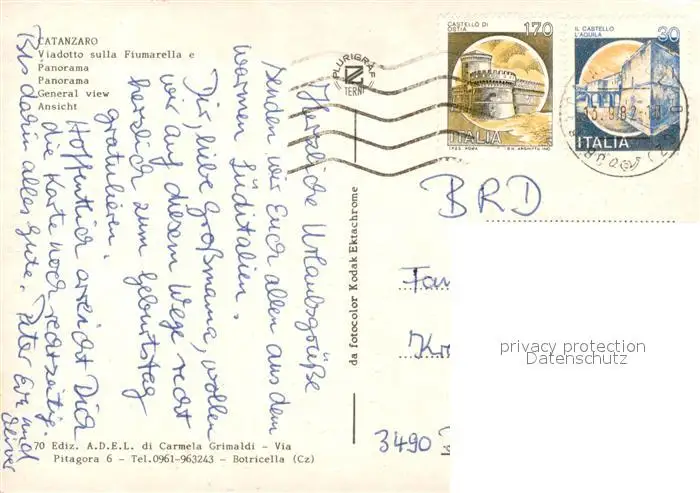 CATANZARO
Viadotto sulla Fiumarella e
Panorama
Panorama
General view
Ansicht
PLURIGRAF
N
TERNI
CASTELLO DI OSTIA
170
ITALIA
I.P.Z.S. ROMA
IL CASTELLO
L'AQUILA
30
ITALIA
BRD
Herzliche Urlaubsgrüße
senden wir Euch allen aus dem
warmen Süditalien.
Dir, liebe Großmama, wollen
wir auf diesem Wege recht
herzlich zum Geburtstag
gratulieren.
Hoffentlich erreicht Dich
die Karte noch rechtzeitig.
Bis dahin alles Gute. Peter Eve und
Oliver
da fotocolor Kodak Ektachrome
Fam
Kr
3490
privacy protection
Datenschutz
70 Ediz. A.D.E.L. di Carmela Grimaldi - Via
Pitagora 6 - Tel.0961-963243 - Botricella (Cz)